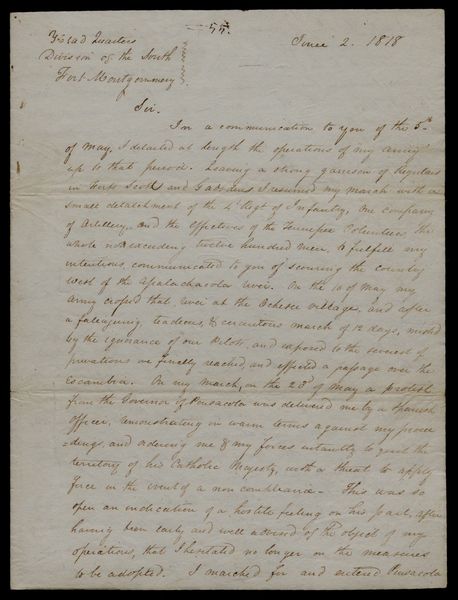 55.
Head Quarters
Division of the South
Fort Montgommery
June 2. 1818
Sir.
In a communication to you of the 5th
of May, I detailed at length the operations of my army
up to that period. Leaving a strong garrison of Regulars
in Forts Scott and Gadsden I resumed my march with a
small detachment of the 4th Regt of Infantry, One company
of Artillery, and the effectives of the Tennessee Volunteers The
whole not exceeding twelve hundred men, to fulfill my
intentions communicated to you of scouring the country
West of the Apalachacola river. On the 10 of May my
Army crossed that river at the Ochesee villages, and after
a fatieguing, tedeous, & circuitous march of 12 days, misled
by the ignorance of our Pilots, and exposed to the severest of
privations we finally reached, and effected a passage over the
Escambia. On my march, on the 23d of May a protest
from the Governor of Pensacola was delivered me by a Spanish
Officer, remonstrating in warm terms against my procee
=dings, and ordering me & my forces instantly to quit the
territory of his Catholic Majesty, with a threat to apply
force in the event of a non complianc. This was so
open an indication of a hostile feeling on his part, after
having been early and well advised of the object of my
operations, that I hesitated no longer on the measures
to be adopted. I marched for and entered Pensacola